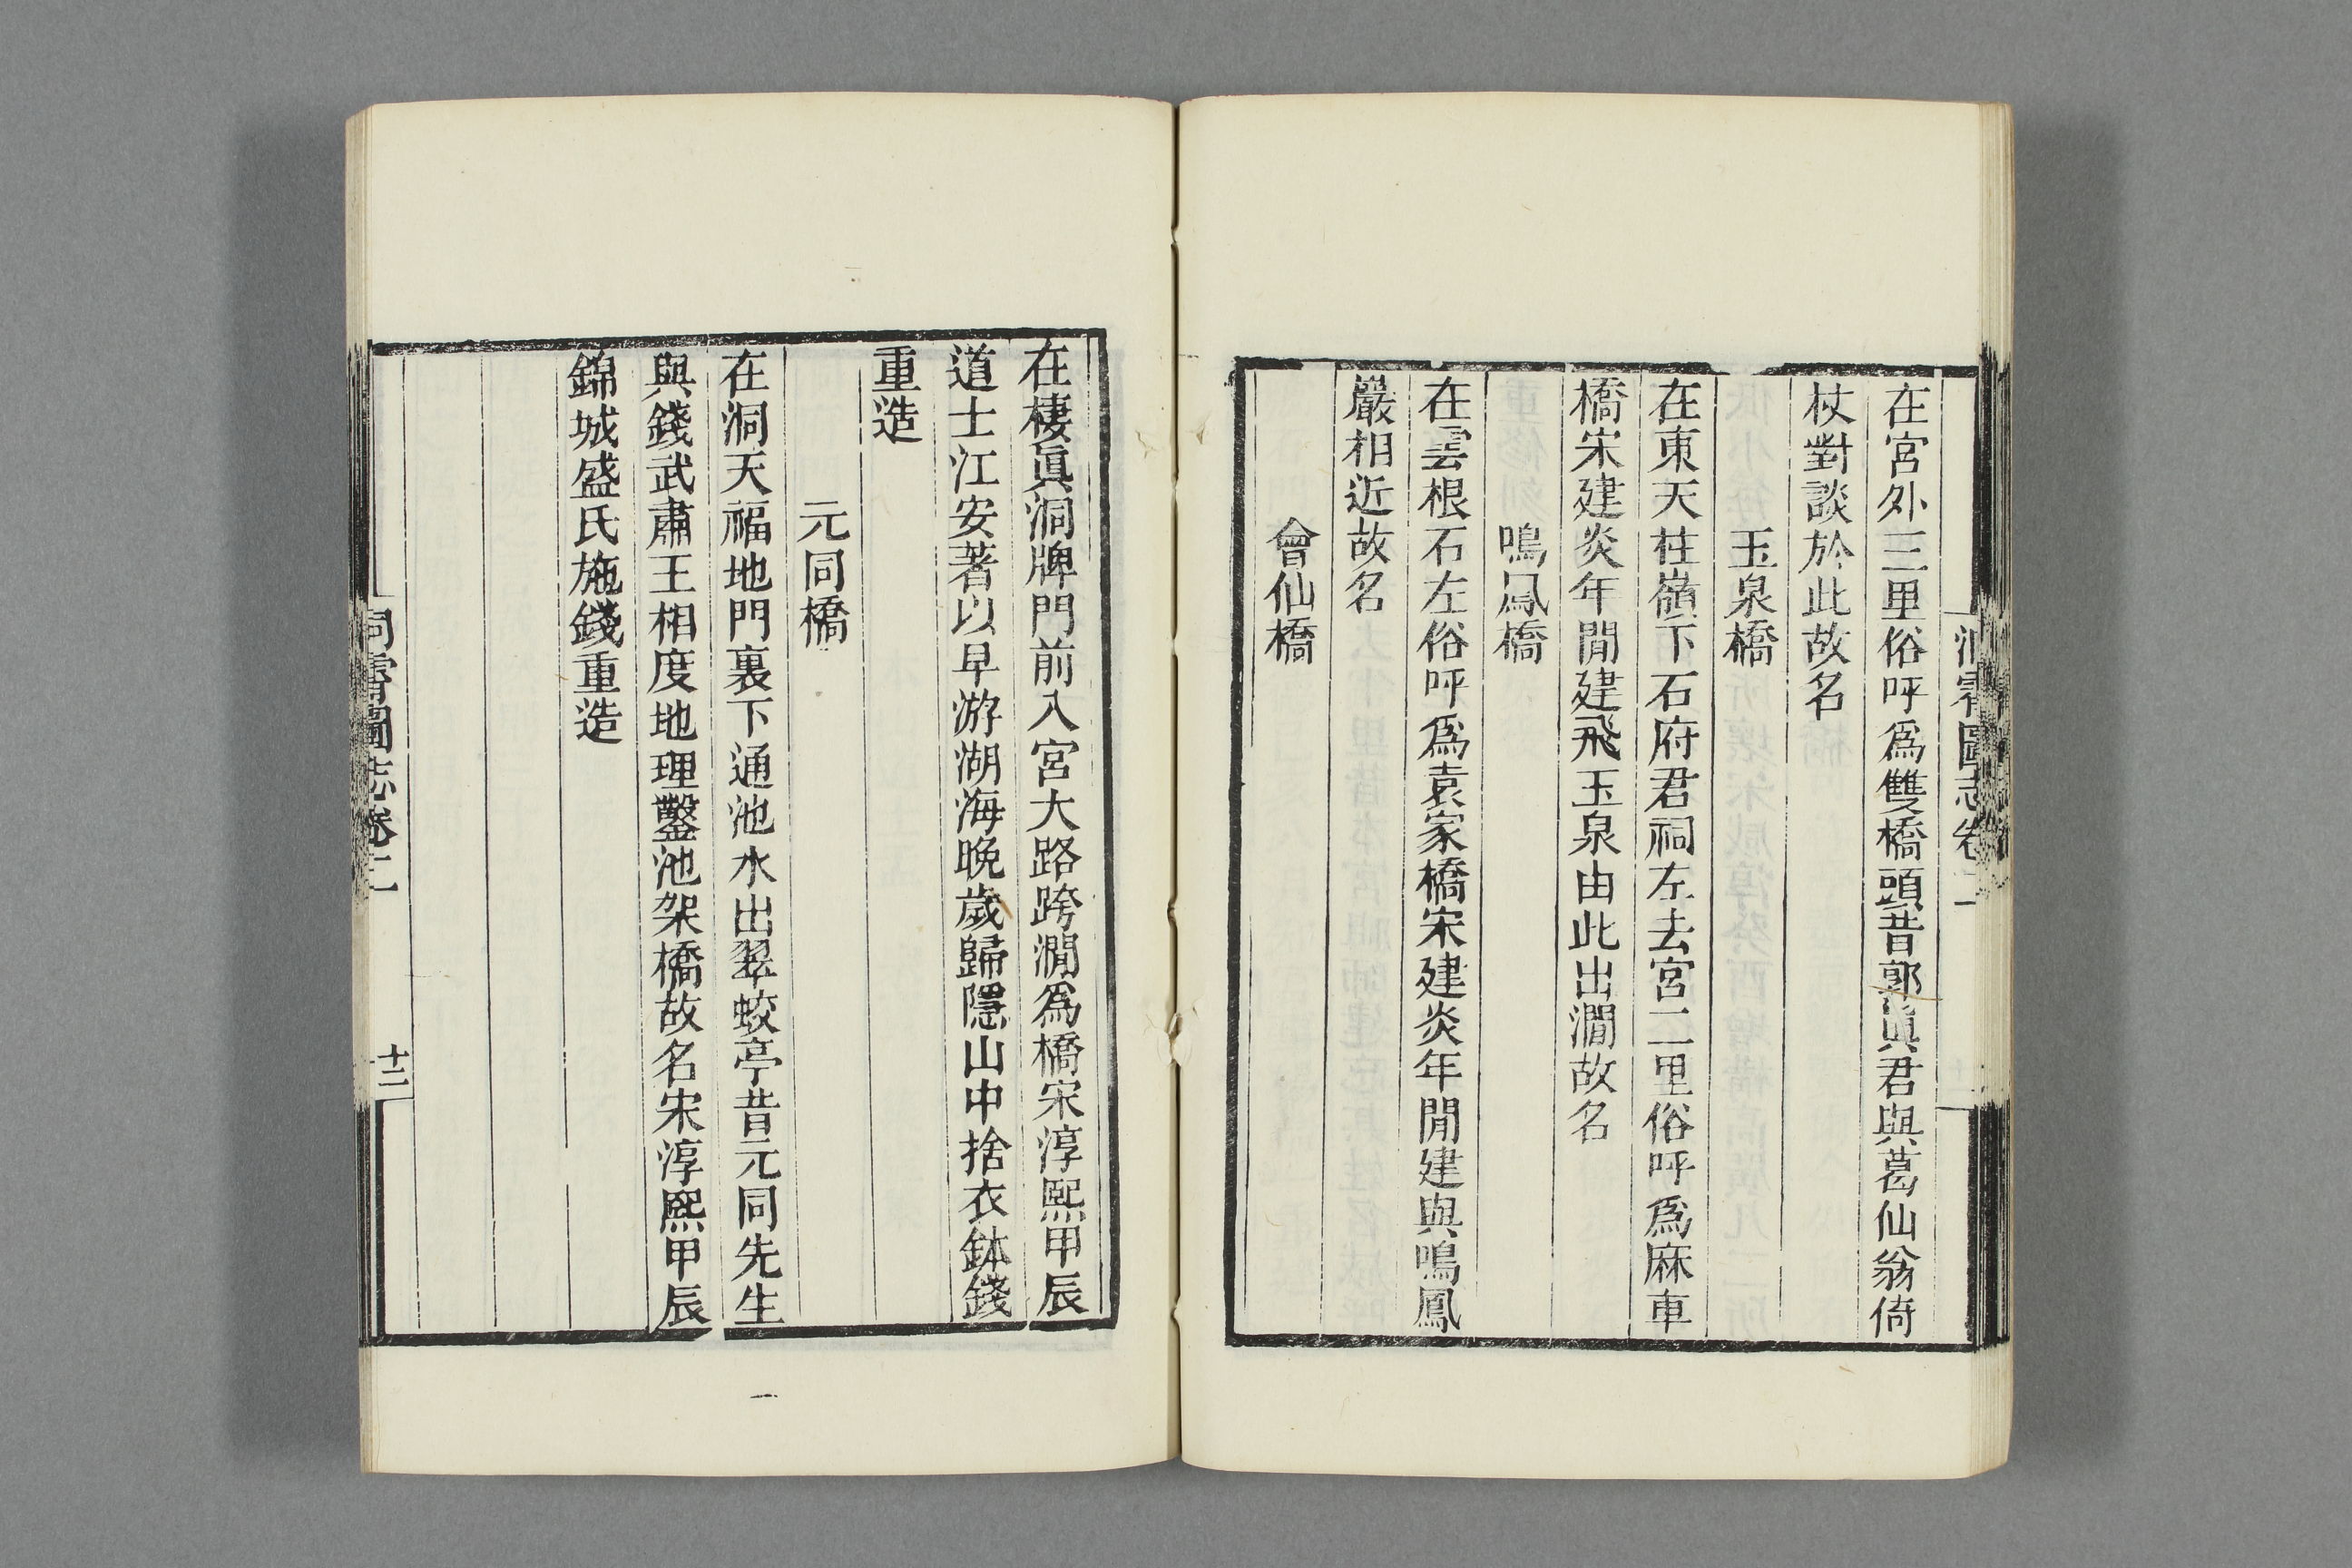 洞霄圖志卷二
在宮外三里俗呼爲雙橋頭昔郭眞君與葛仙翁倚
杖對談於此故名
玉泉橋
在東天柱嶺下石府君祠左去宮二里俗呼爲麻車
橋宋建炎年閒建飛玉泉由此出澗故名
鳴鳳橋
在雲根石左俗呼爲袁家橋宋建炎年閒建與鳴鳳
巖相近故名
會仙橋
在棲眞洞牌門前入宮大路跨澗爲橋宋淳熙甲辰
道士江安著以早游湖海晚歲歸隱山中捨衣鉢錢
重造
元同橋
在洞天福地門裏下通池水出翠蛟亭昔元同先生
與錢武肅王相度地理鑿池架橋故名宋淳熙甲辰
錦城盛氏施錢重造
洞霄圖志卷二
十二